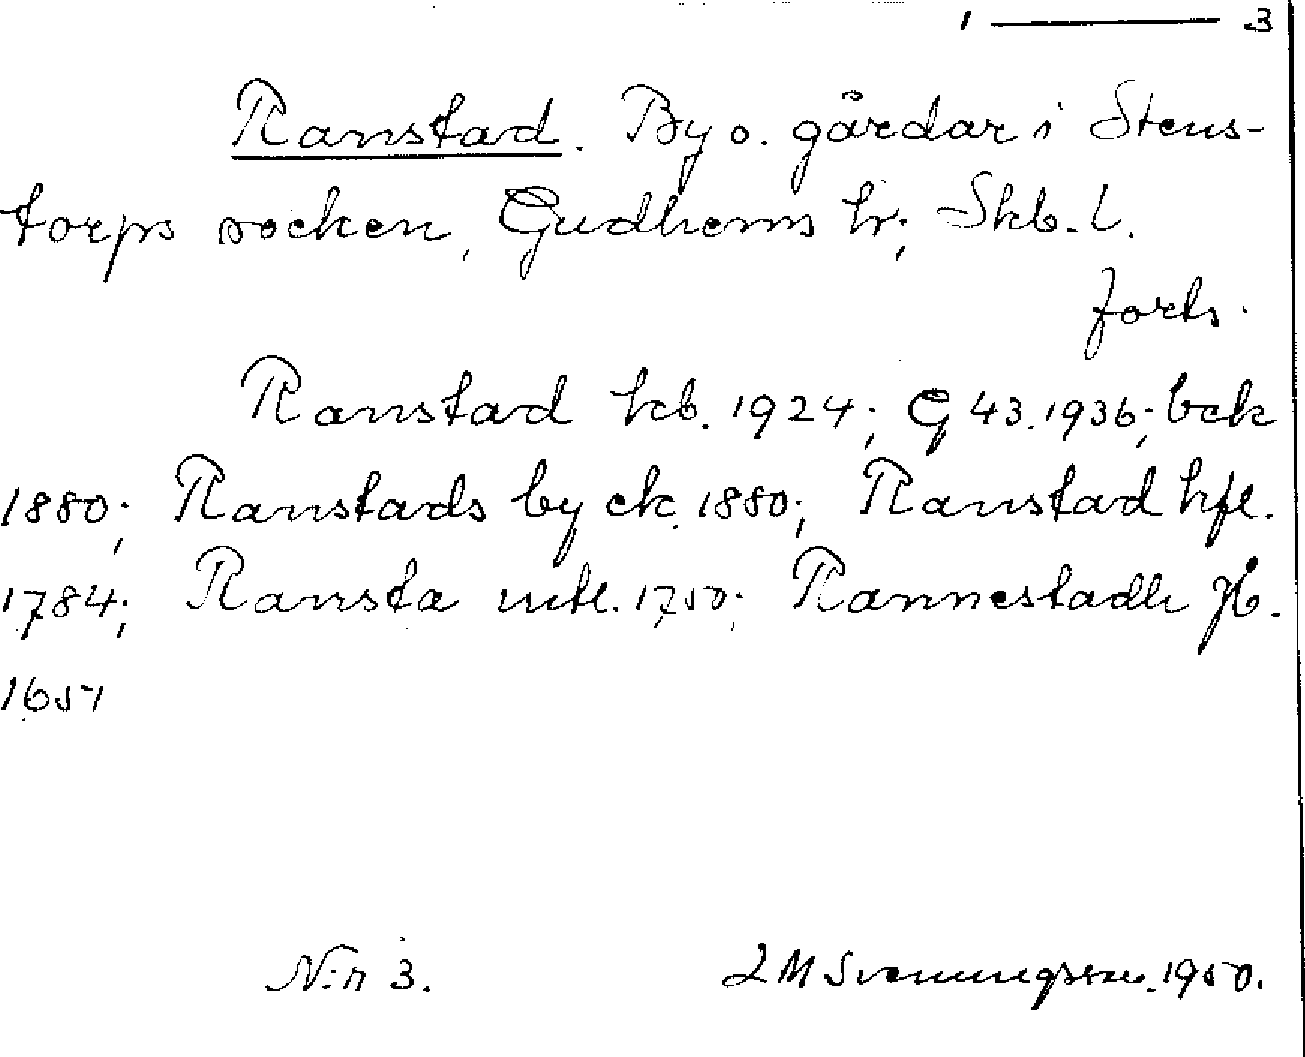 1 — 3
Ranstad. By o. gårdar i Stens-
torps socken, Gudhems hr; Skb. l.
forts.
Ranstad kb. 1924; G 43. 1936; bek
1880; Ranstads by ek. 1880; Ranstad hfl.
1784; Ransta mtl. 1750; Rannestadh Jb.
1651
N:r 3. Svenungsson. 1950.